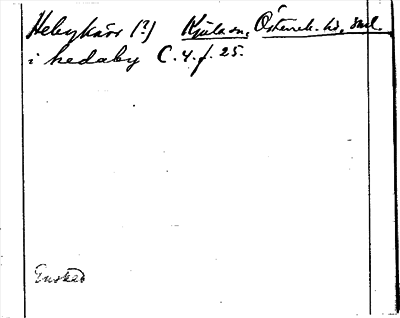 Hebykärr (?) Kjula sn, Österrek. hd, Sml.
i hedaby C. 4. f. 25.
Enstaka